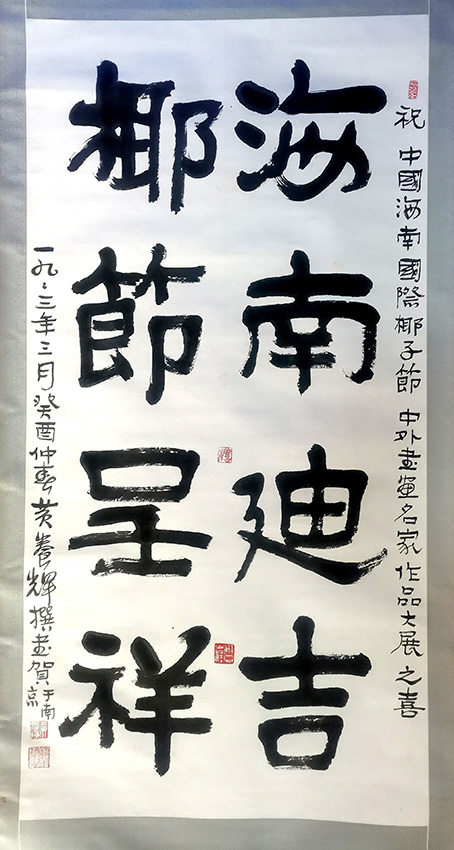 祝 中國海南國際椰子節 中外書畫名家作品大展之喜
海南迪吉
椰節呈祥
一九九三年三月癸酉仲春黄養輝撰書賀于南京